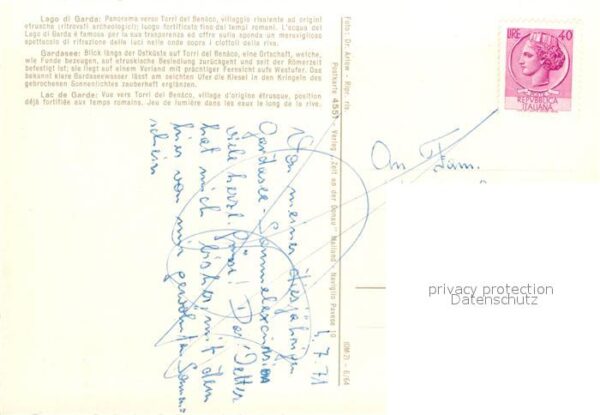 Lago di Garda: Panorama verso Torri del Benàco, villaggio risalente ad origini
etrusche (ritrovati archeologici); luogo fortificato fino dai tempi romani. L'acqua del
Lago di Garda è famosa per la sua trasparenza ed offre sulla sponda un meraviglioso
spettacolo di rifrazione delle luci nelle onde sopra i ciottoli della riva.
Gardasee: Blick längs der Ostküste auf Torri del Benàco, eine Ortschaft, welche,
wie Funde bezeugen, auf etruskische Besiedlung zurückgeht und seit der Römerzeit
befestigt ist; sie liegt auf einem Vorland mit prächtiger Fernsicht aufs Westufer. Das
bekannt klare Gardaseewasser lässt am seichten Ufer die Kiesel in den Kringeln des
gebrochenen Sonnenlichtes zauberhaft erglänzen.
Lac de Garde: Vue vers Torri del Benàco, village d'origine étrusque, position
déjà fortifiée aux temps romains. Jeu de lumière dans les eaux le long de la rive.
Foto: Dr. - Ripr. ris.
Postkarte 4557 - Verlag „Zeit an der Donau" Mailand - Naviglio Pavese 10
LIRE 40
REPVBBLICA
ITALIANA
An Fam.
4.7.71
Von meiner diesjährigen
Gardasee-
viele herzl. Grüße! Das Wetter
hat mich bisher mit dem
hier von mir gewohnten Sonnen-
schein
privacy protection
Datenschutz